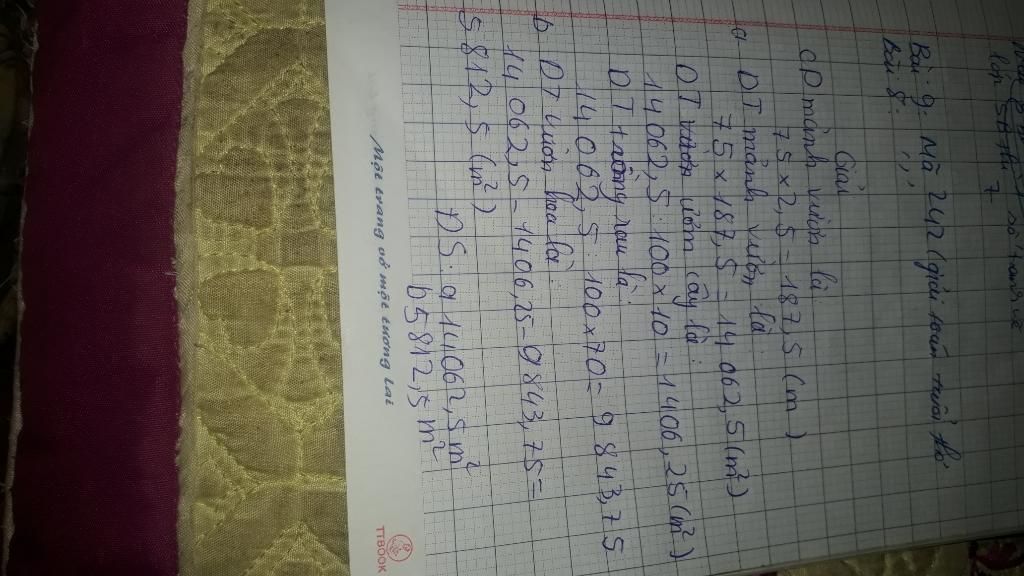 Lớp 5A thứ 7
Bài 9: Mã 242 (giải toán tuổi thơ
Bài 8: ,,
Giải
CD mảnh vườn là:
75 x 2,5 = 187,5 (m)
a DT mảnh vườn là:
75 x 187,5 = 14 062,5 (m²)
DT vườn ươm cây là:
14062,5 : 100 x 10 = 1406,25 (m²)
DT trồng rau là:
14 062,5 : 100 x 70 = 9 843,75
b DT vườn hoa là:
14 062,5 - 1406,25 - 9843,75 =
5 812,5 (m²)
ĐS: a 14062,5 m²
b 5 812,5 m²
Một trang vở một tương lai
TTBOOK